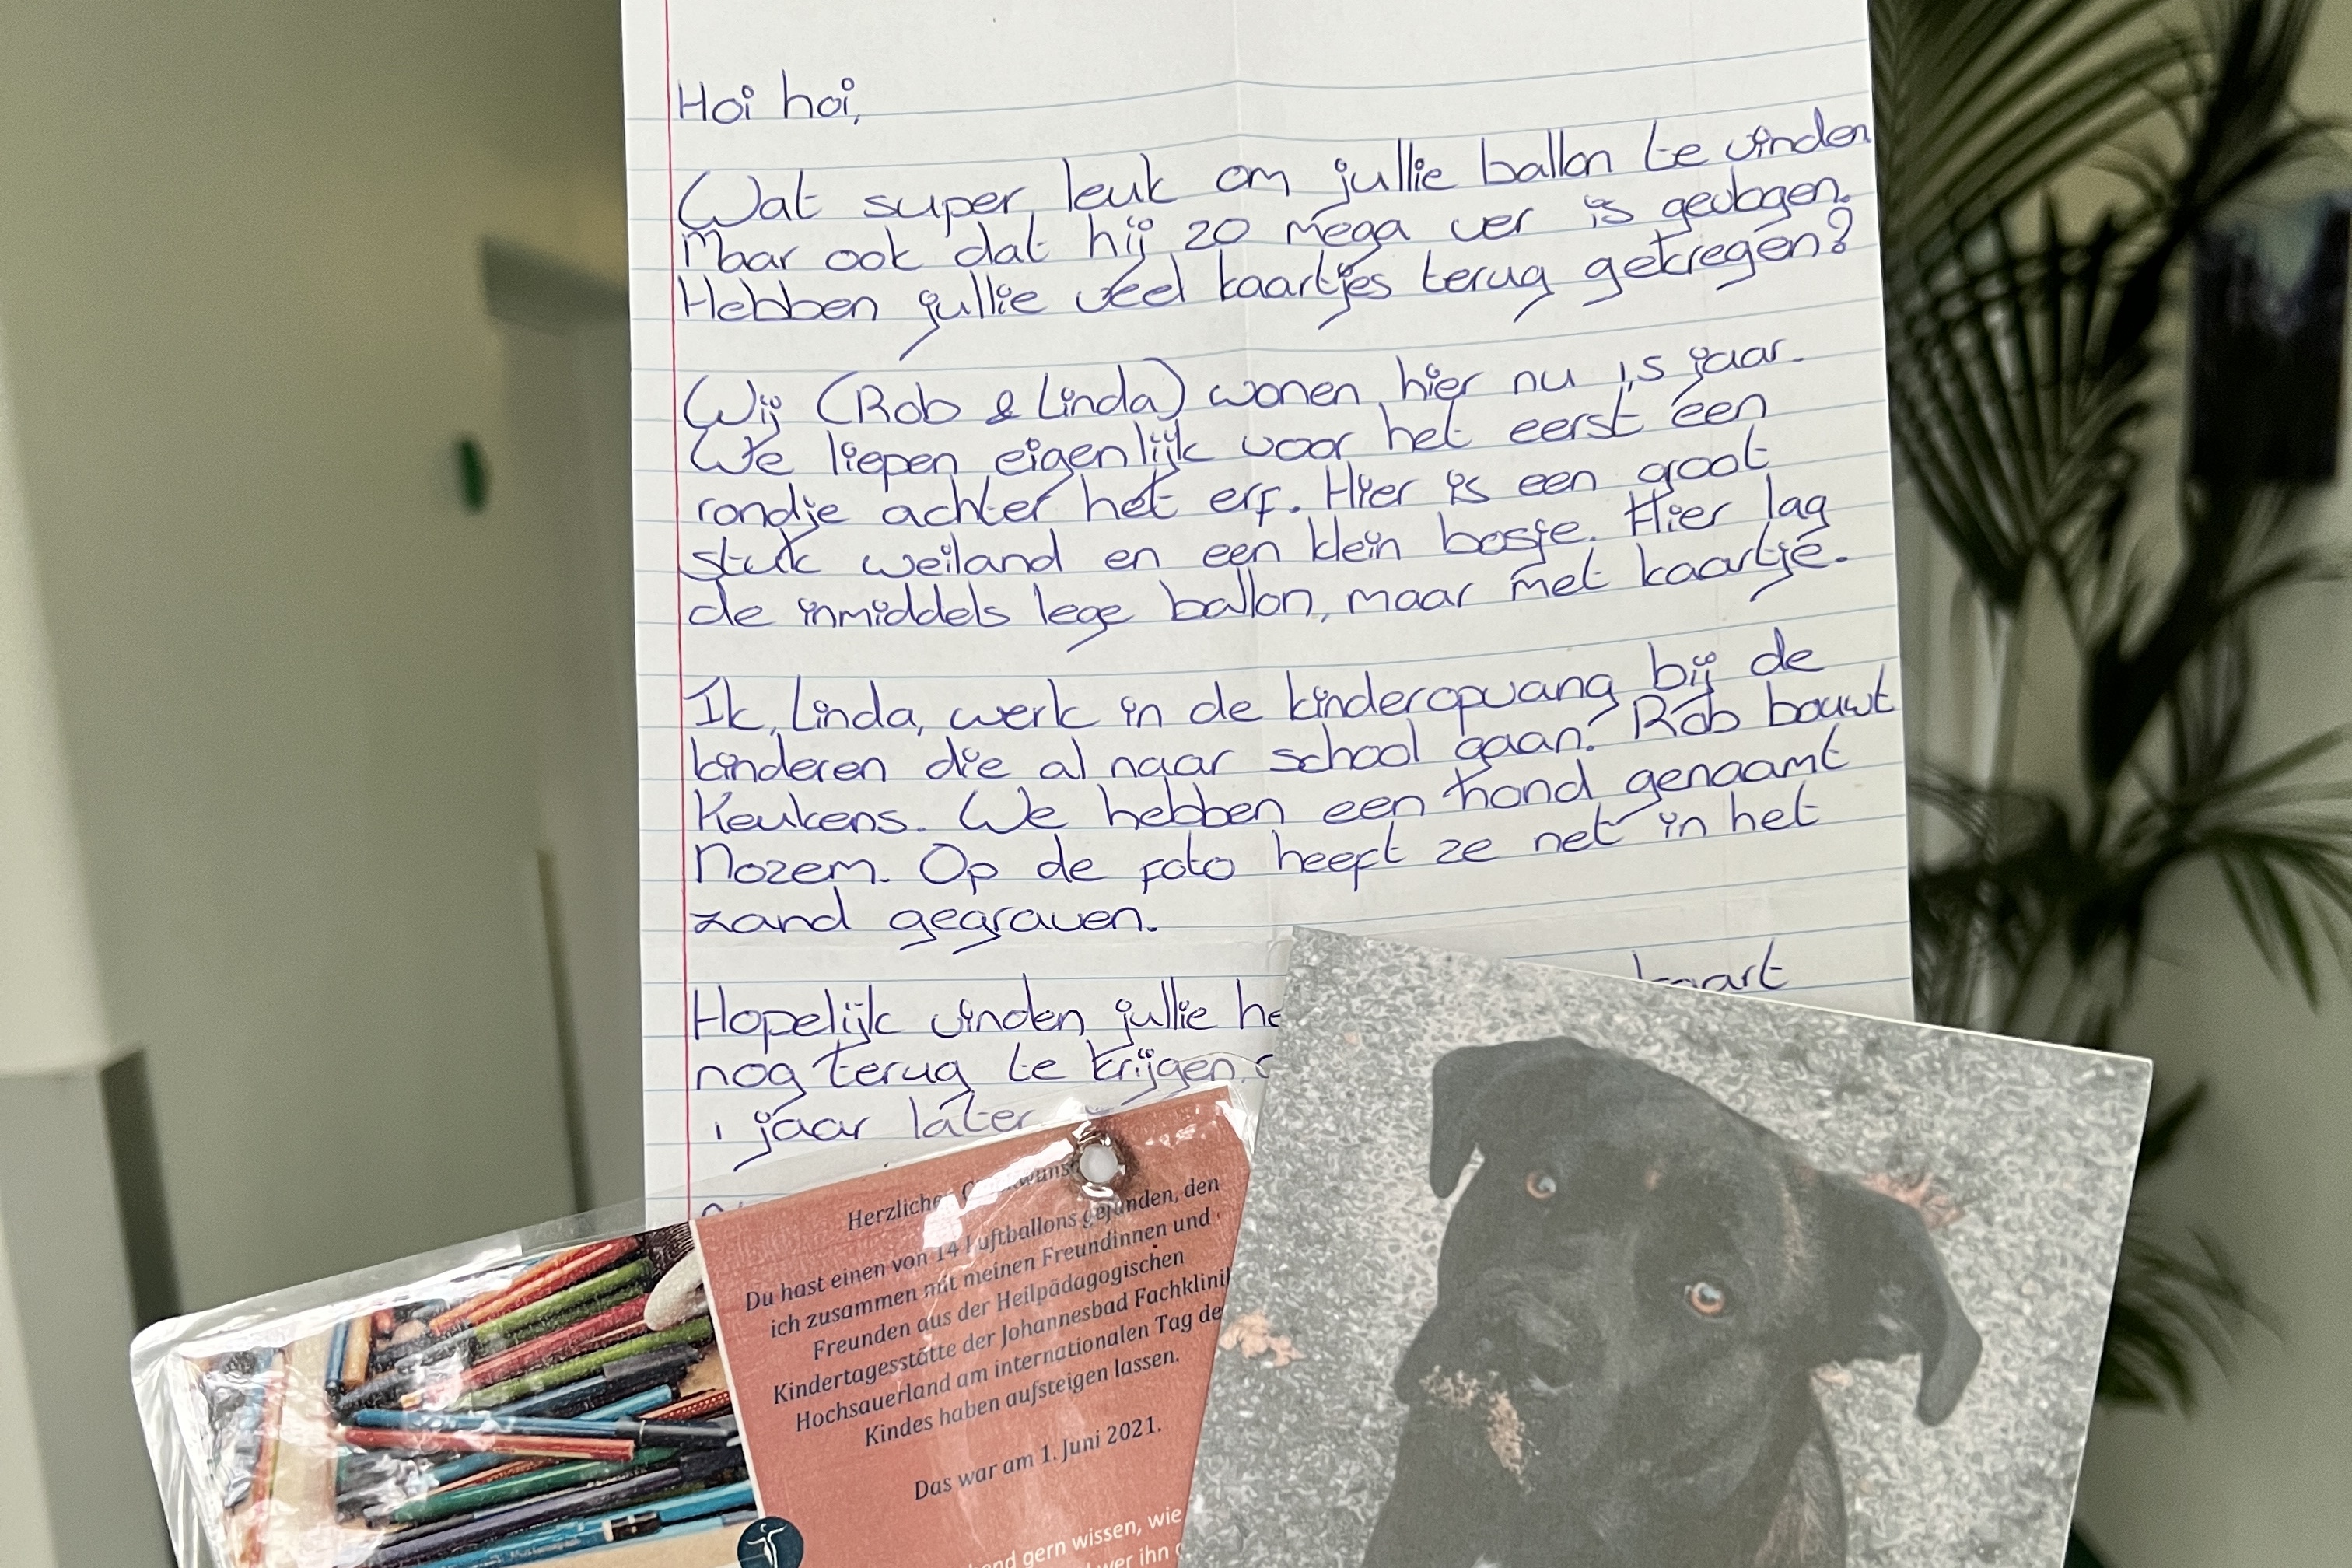 Hoi hoi,
Wat super leuk om jullie ballon te vinden
Maar ook dat hij zo mega ver is gevlogen.
Hebben jullie veel kaartjes terug gekregen?
Wij (Rob & Linda) wonen hier nu 1,5 jaar.
We liepen eigenlijk voor het eerst een
rondje achter het erf. Hier is een groot
stuk weiland en een klein bosje. Hier lag
de inmiddels lege ballon, maar met kaartje.
Ik, Linda, werk in de kinderopvang bij de
kinderen die al naar school gaan. Rob bouwt
keukens. We hebben een hond genaamt
Nozem. Op de foto heeft ze net in het
zand gegraven.
Hopelijk vinden jullie
nog terug te krijgen
1 jaar later
Du hast einen von 14 Luftballons gefunden, den
ich zusammen mit meinen Freundinnen und
Freunden aus der Heilpädagogischen
Kindertagesstätte der Johannesbad Fachklinik
Hochsauerland am internationalen Tag de
Kindes haben aufsteigen lassen.
Das war am 1. Juni 2021.
gern wissen, wie
wer ihn